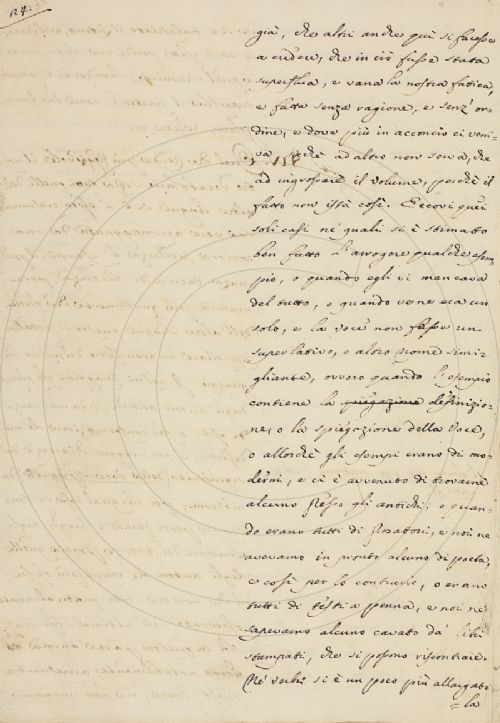 24.
già, che altri anche quì si facesse
a credere, che in ciò fusse stata
superflua, e vana la nostra fatica,
e fatta senza ragione, e senz' or=
dine, e dove più in acconcio ci veni=
va, chè ad altro non serva, che
ad ingrossare il volume, poichè il
fatto non istà così. Eccovi quei
soli casi ne' quali si è stimato
ben fatto l'arrogere qualche esem=
pio, o quando egli vi mancava
del tutto, o quando ve ne era un
solo, e la voce non fosse un
superlativo, o altro nome simi=
gliante, ovvero quando l'esempio
contiene la spiegazione definizio=
ne, o la spiegazione della voce,
o allorchè gli esempi erano di mo=
derni, e ci è avvenuto di trovarne
alcuno presso gli antichi; o quan=
do erano tutti di Prosatori, e noi ne
avevamo in pronto alcuno di poeta,
e così per lo contrario, o erano
tutti di testi a penna, e noi ne
sapevamo alcuno cavato da' libri
stampati, che si possono riscontrare.
Ne' verbi si è un poco più allargato
=la